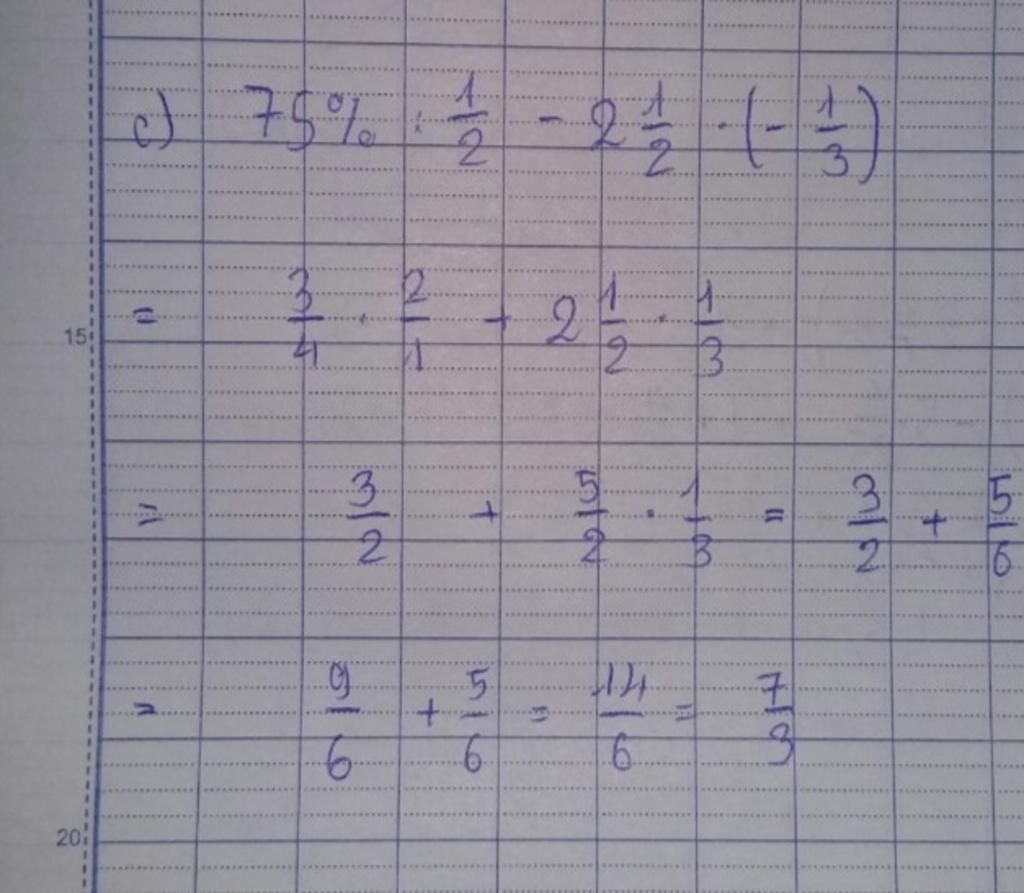 c) 75% : 1/2 - 2 1/2 · (- 1/3)
15 = 3/4 · 2/1 + 2 1/2 · 1/3
= 3/2 + 5/2 · 1/3 = 3/2 + 5/6
= 9/6 + 5/6 = 14/6 = 7/3
20